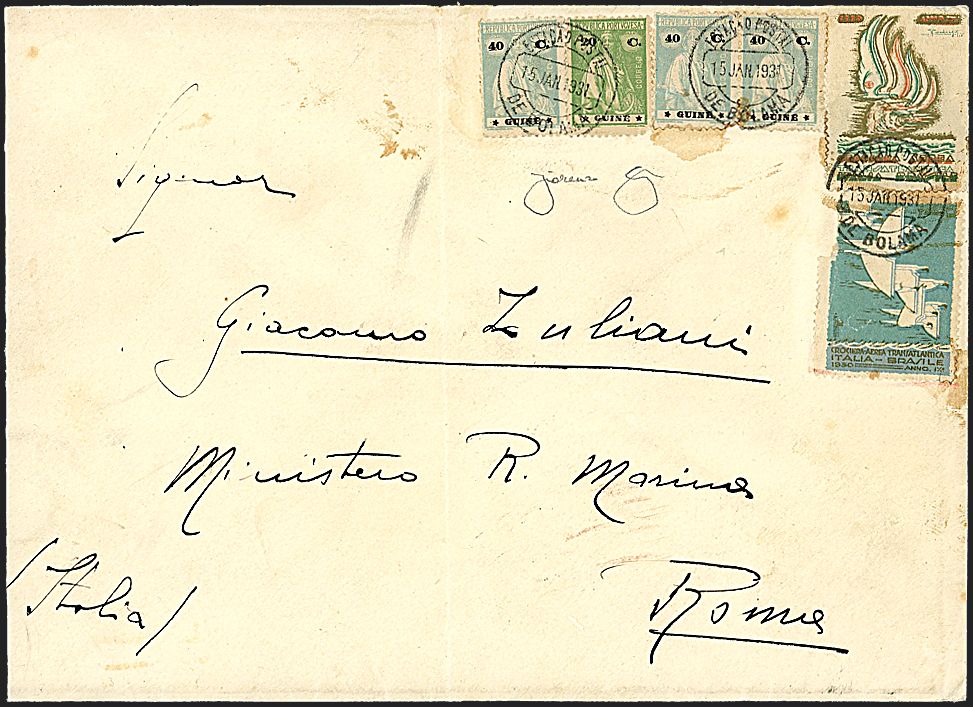 REPUBLICA PORTUGUESA
40 C. C. 40 C. 40 C.
CORREIO
★ GUINÉ ★ ★ GUINÉ ★ ★ GUINÉ ★ GUINÉ ★
15 JAN. 1931
DE BOLAMA
15 JAN. 1931
DE BOLAMA
15 JAN. 1931
DE BOLAMA
CROCIERA AEREA TRANSATLANTICA
ITALIA - BRASILE
1930 ANNO. IX
Signor
Giacomo Zuliani
Ministero R. Marina
(Italia)
Roma